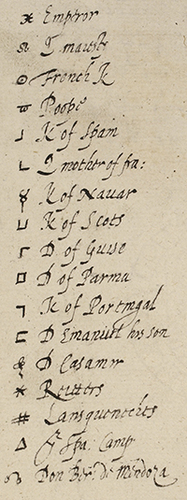 Emperor
Q maiestie
French K
Poope
K of Spain
Q mother of fra:
K of Nauar
K of Scots
D of Guise
D of Parma
K of Portingal
D Emanuel his son
D Casimir
Reitters
Lansquenechts
yͤ Spa. Camp
Don Ber: de Mendoza